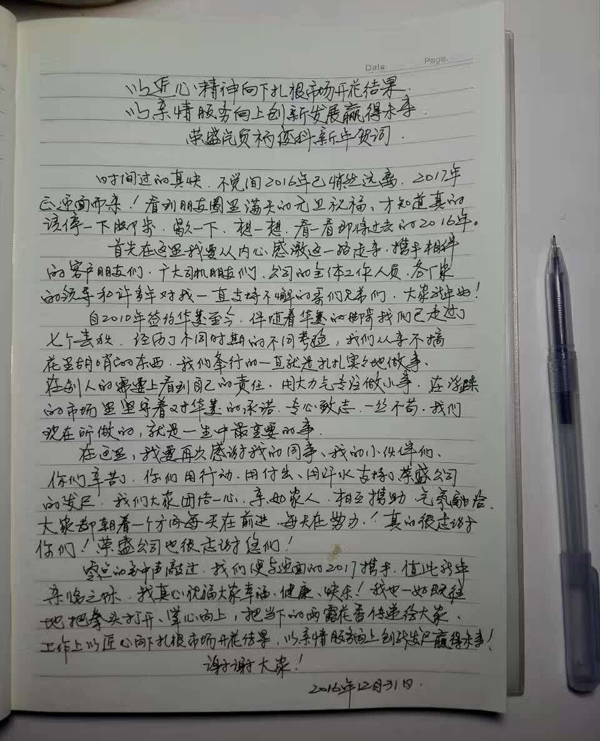 Date    Page
以匠心精神向下扎根市场开花结果
以亲情服务向上创新发展赢得未来
荣盛 新年贺词
时间过的真快，不觉间2016年已悄然远离，2017年
正迎面而来！看到朋友圈里满天的元旦祝福，才知道真的
该停一下脚步，歇一下，想一想，看一看即将过去的2016年。
首先在这里我要从内心感激这一路走来，携手相伴
的客户朋友们，广大司机朋友们，公司的全体工作人员，各厂家
的领导和许多年对我一直支持不懈的哥们兄弟们，大家新年好！
自2010年签约华美至今，伴随着华美的 我们已走过了
七个春秋，经历了不同时期的不同考验，我们从来不搞
花里胡哨的东西，我们奉行的一直就是扎扎实实地做事，
在别人的需要上看到自己的责任，用大力气专注做小事，在浮躁
的市场里坚守着对华美的承诺，专心致志，一丝不苟，我们
现在所做的，就是一生中最重要的事。
在这里，我要再次感谢我的同事、我的小伙伴们，
你们辛苦了，你们用行动、用付出、用汗水支持了荣盛公司
的发展，我们大家团结一心，亲如家人，相互携助，
大家都朝着一个方向每天在前进，每天在努力！真的很感谢
你们！荣盛公司也很感谢您们！
零点的钟声敲过，我们便与迎面的2017携手，值此新年
来临之际，我真心祝福大家幸福、健康、快乐！我也一如既往
地把拳头打开，掌心向上，把当下的雨露花香传递给大家，
工作上以匠心向下扎根市场开花结果，以亲情服务向上创新发展赢得未来！
谢谢大家！
2016年12月31日.